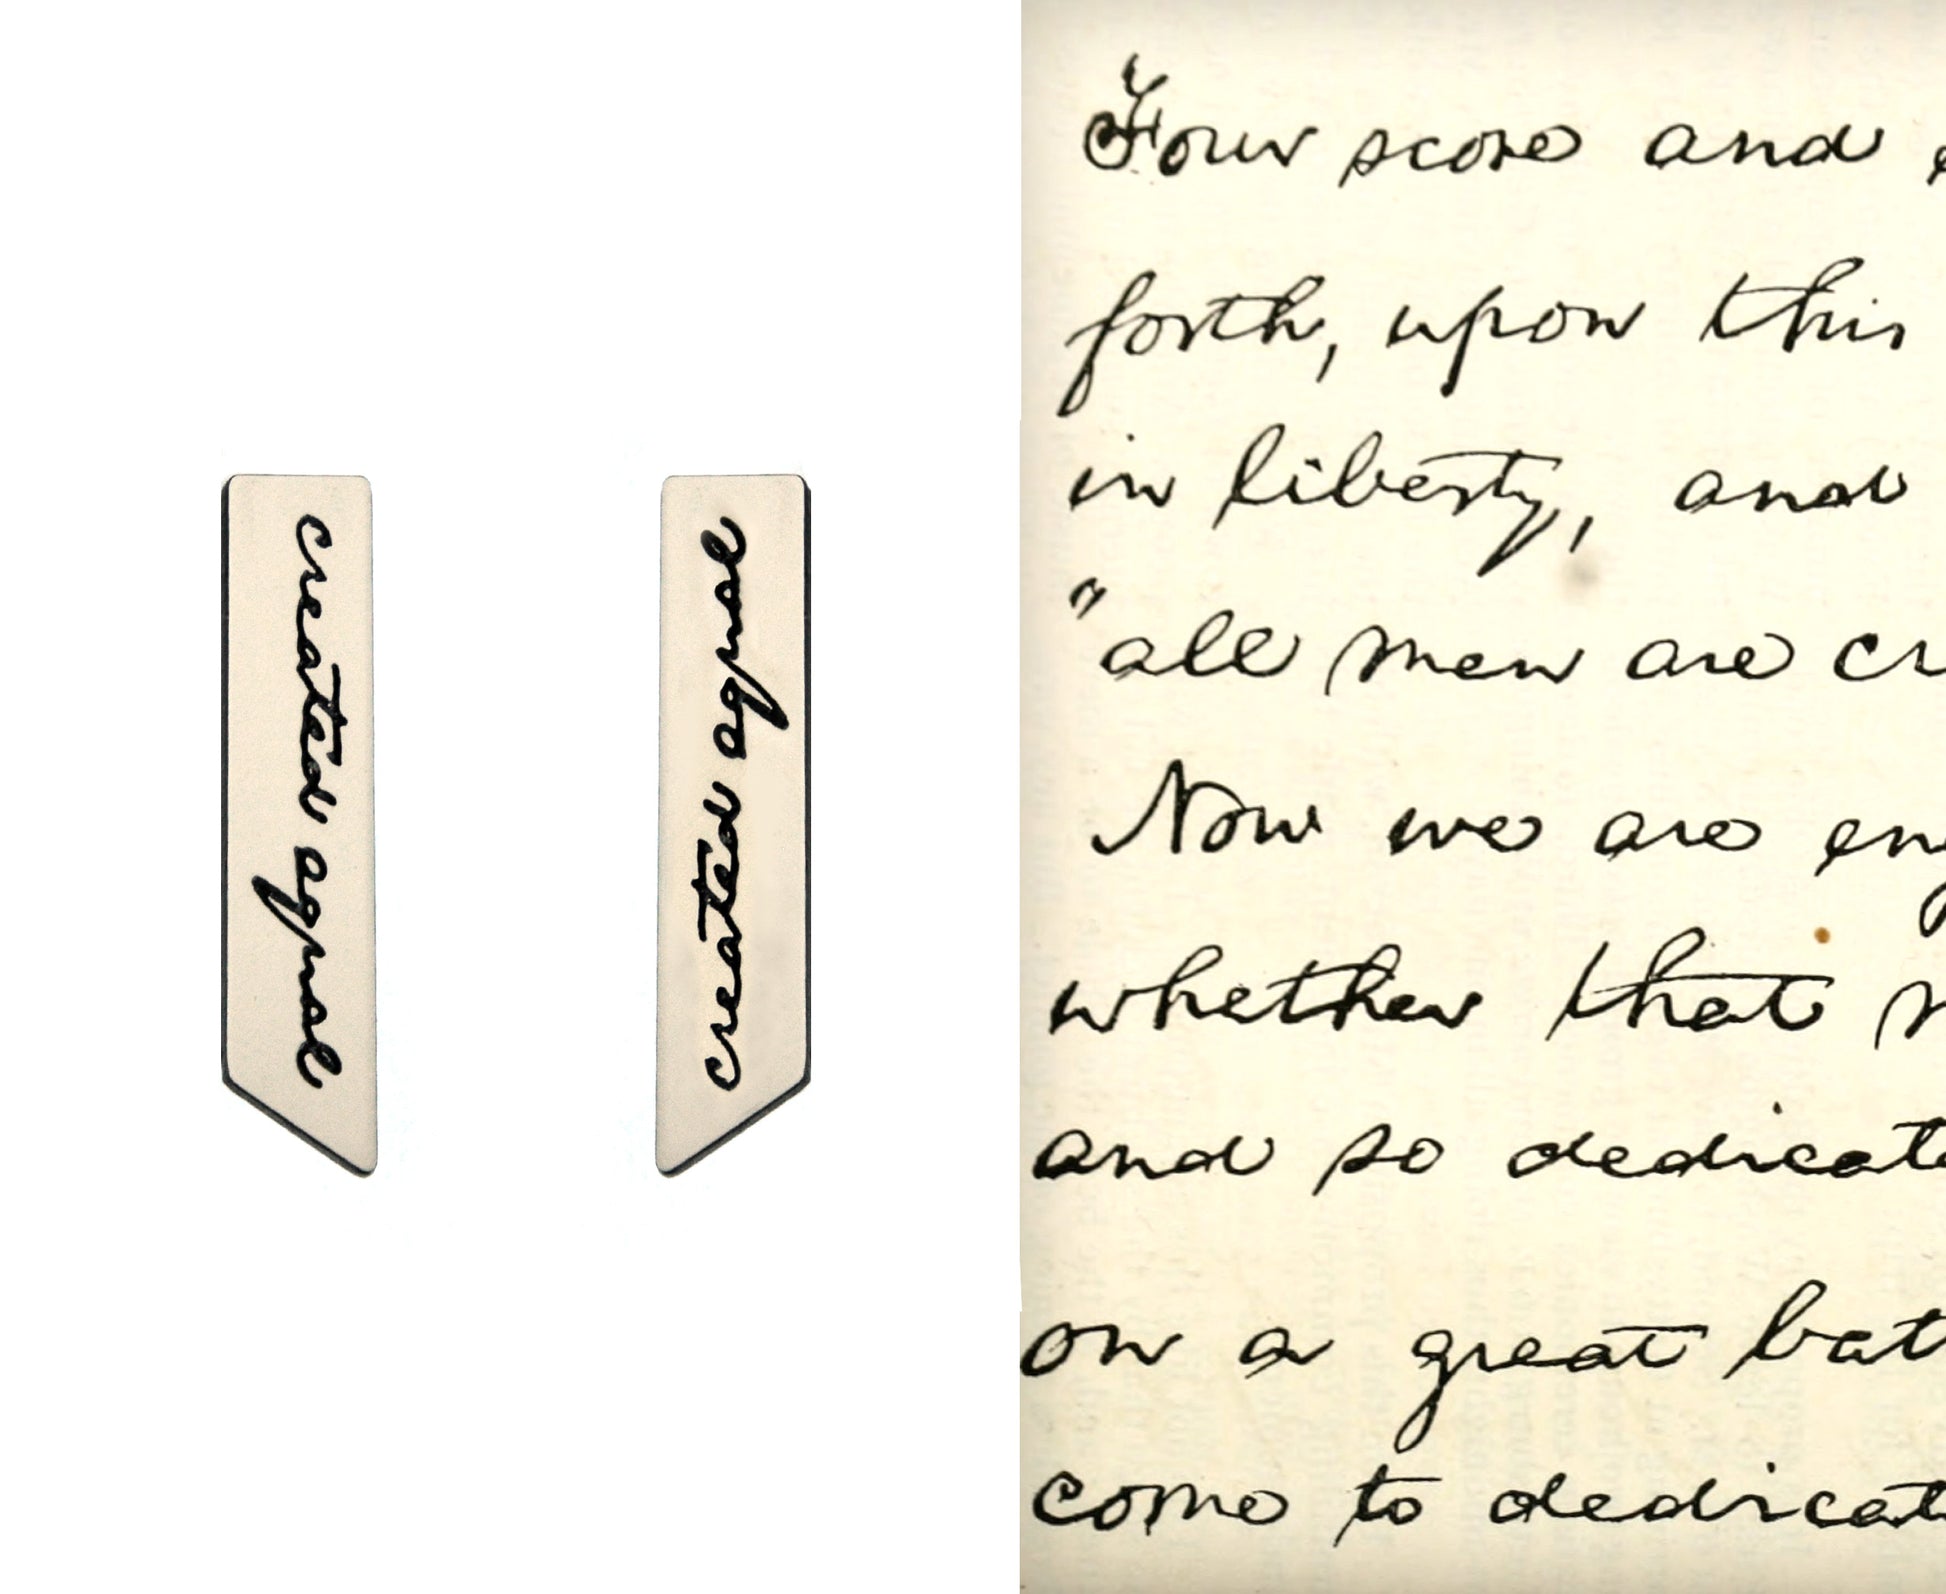 created equal
created equal
Four score and
forth, upon this
in liberty, and
"all men are cr
Now we are eng
whether that n
and so dedicat
on a great bat
come to dedicat